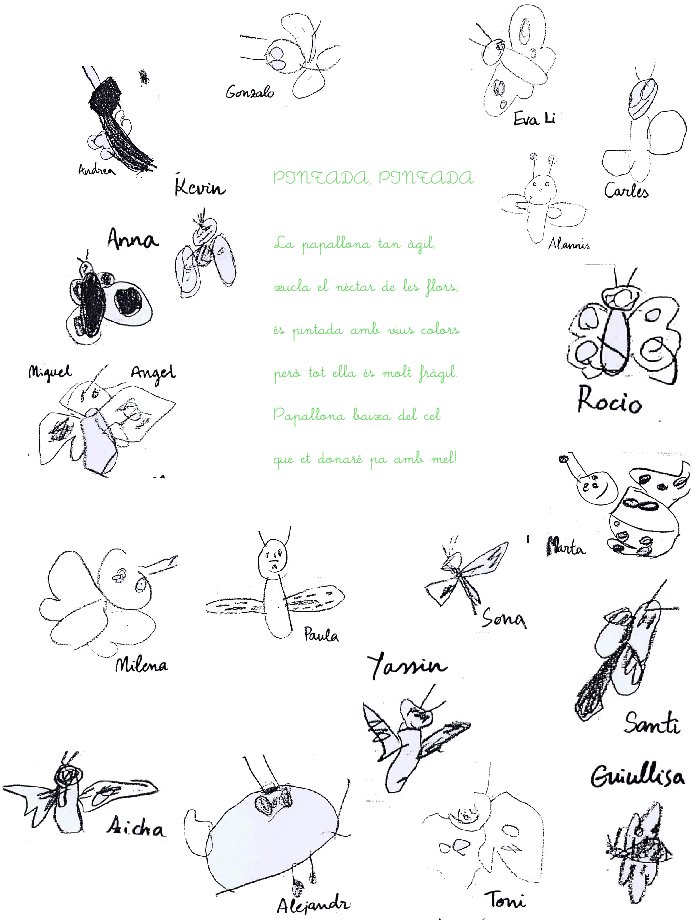 Gonzalo
Eva Li
Andrea
Carles
Kevin
PINTADA, PINTADA
Alannis
Anna
La papallona tan àgil,
xucla el nèctar de les flors,
és pintada amb vius colors
però tot ella és molt fràgil.
Papallona baixa del cel
que et donaré pa amb mel!
Miguel Angel
Rocio
Marta
Milena
Paula
Sona
Yassin
Santi
Aicha
Guiullisa
Alejandr
Toni